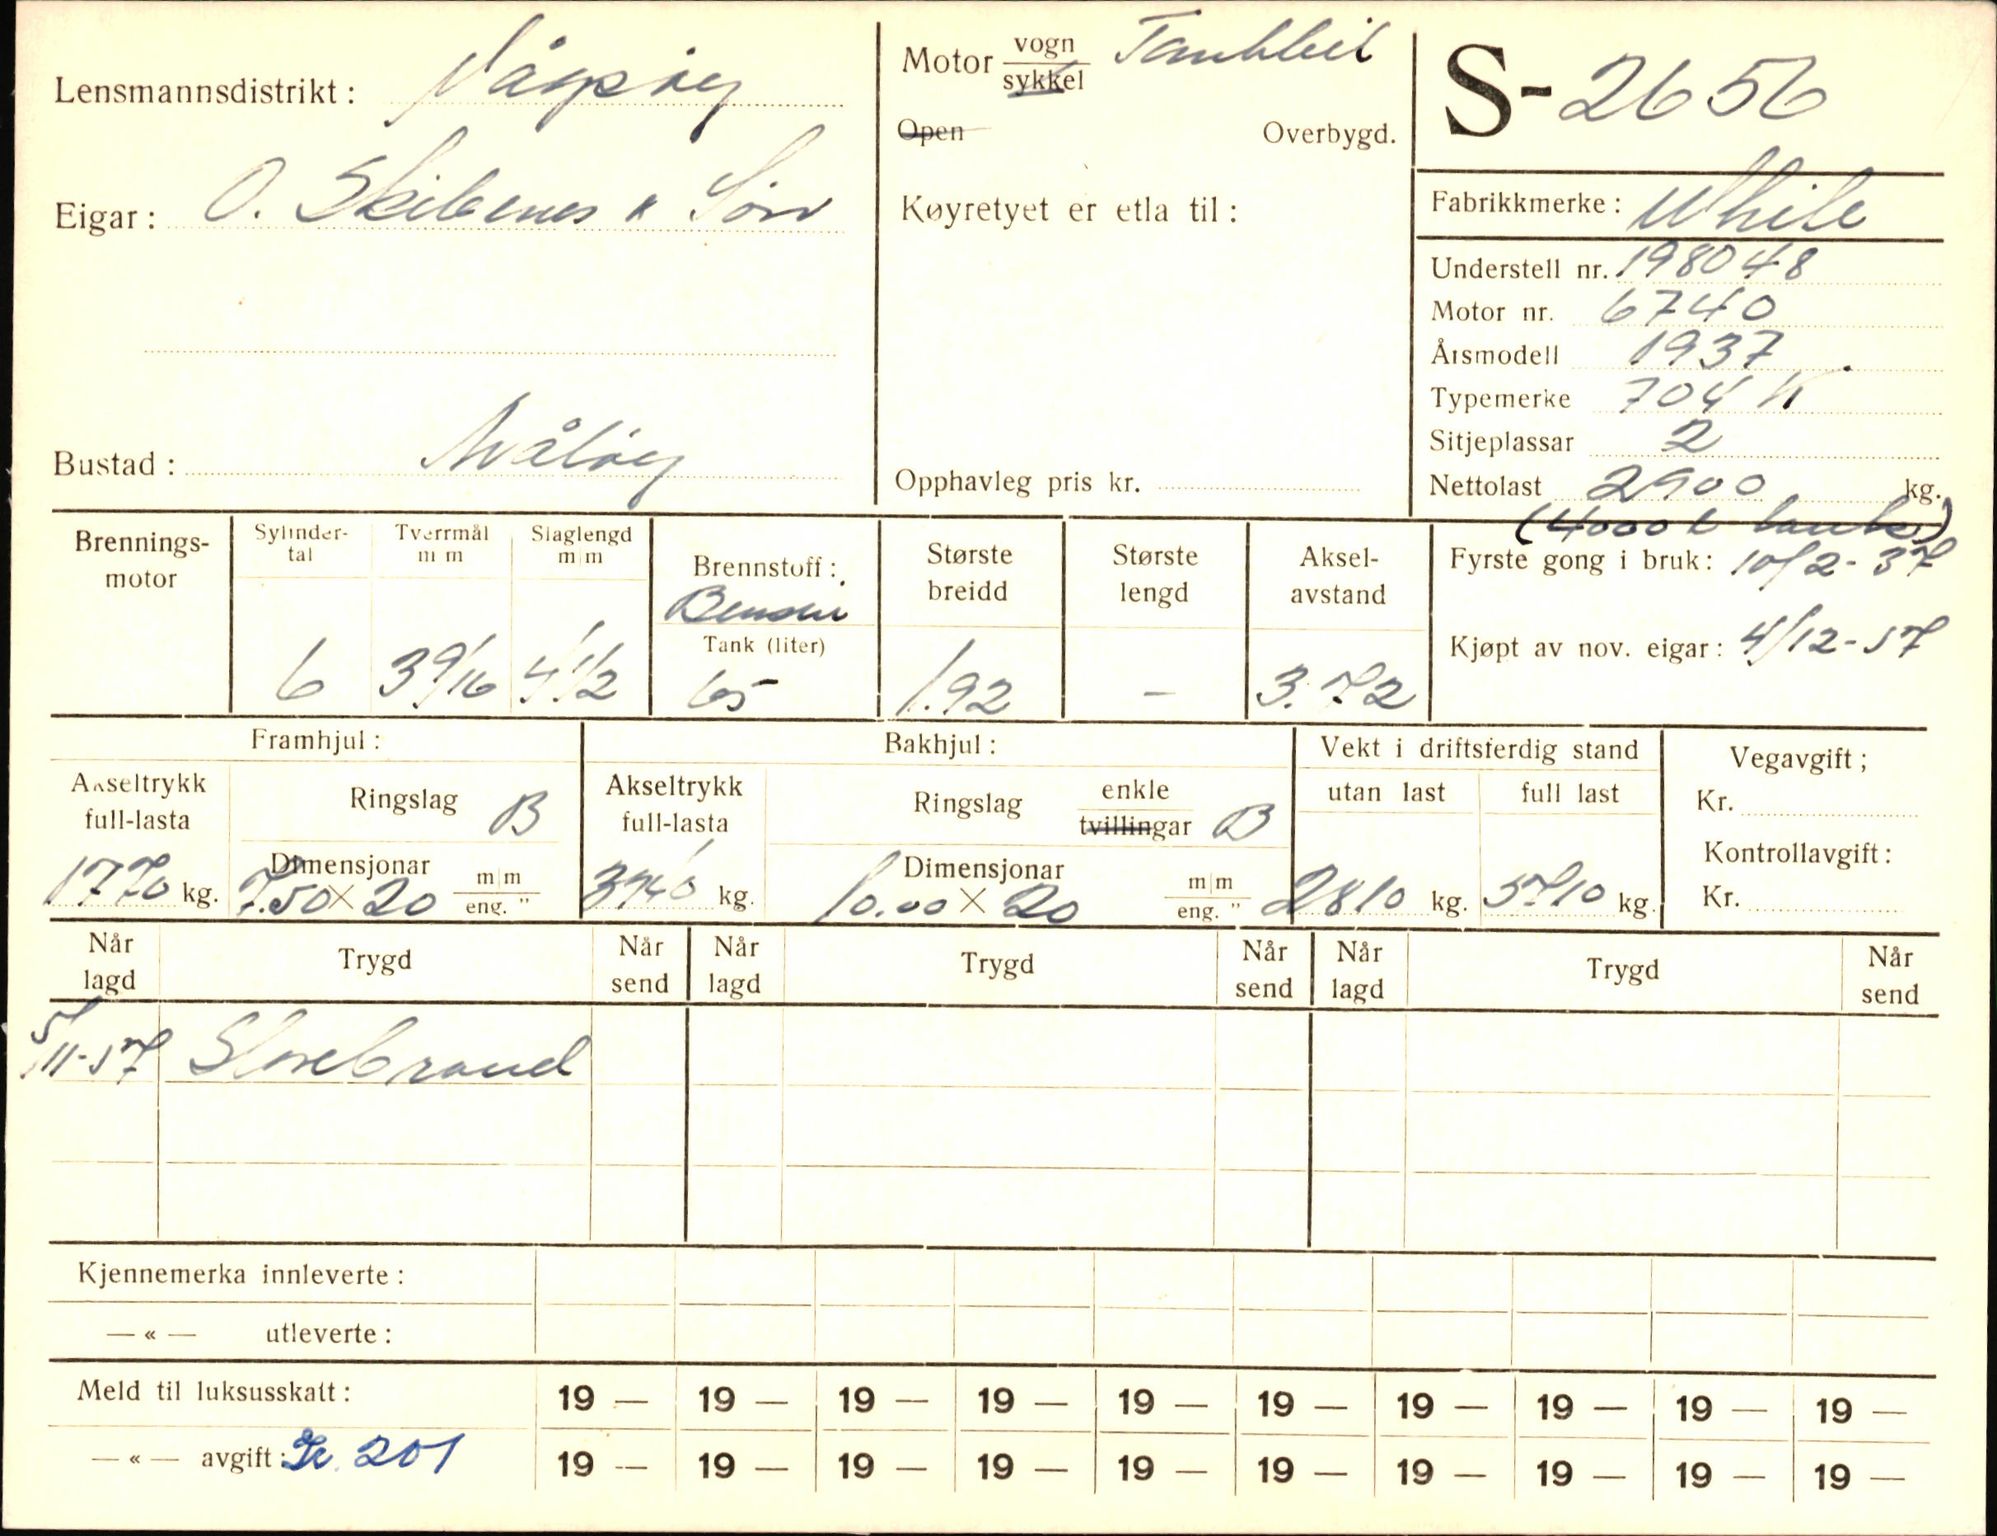 Lensmannsdistrikt: Vågsøy
Eigar: O. Skibenes & Sønn
Bustad: Måløy
Motor vogn Tankbil
sykkel
Open Overbygd.
Køyretyet er etla til:
Opphavleg pris kr.
S-2656
Fabrikkmerke: White
Understell nr. 198048
Motor nr. 6740
Årsmodell 1937
Typemerke 704 K
Sitjeplassar 2
Nettolast 2900 kg.
(4000 l tank)
Fyrste gong i bruk: 10/2-37
Kjøpt av nov. eigar: 4/12-57
Brennings-
motor
Sylinder-
tal
6
Tverrmål
m m
3 9/16
Slaglengd
m|m
4 1/2
Brennstoff:
Bensin
Tank (liter)
65
Største
breidd
1.92
Største
lengd
-
Aksel-
avstand
3.72
Framhjul:
Akseltrykk
full-lasta
1770 kg.
Ringslag B
Dimensjonar
7.50 x 20 m|m
eng. "
Bakhjul:
Akseltrykk
full-lasta
3940 kg.
Ringslag enkle
tvillingar B
Dimensjonar
10.00 x 20 m|m
eng. "
Vekt i driftsferdig stand
utan last full last
2810 kg. 5710 kg
Vegavgift;
Kr.
Kontrollavgift:
Kr.
Når
lagd Trygd Når
send Når
lagd Trygd Når
send Når
lagd Trygd Når
send
5/11-57 Storebrand
Kjennemerka innleverte:
— « — utleverte:
Meld til luksusskatt: 19 — 19 — 19 — 19 — 19 — 19 — 19 — 19 — 19 — 19 —
— « — avgift: 201 19 — 19 — 19 — 19 — 19 — 19 — 19 — 19 — 19 — 19 —